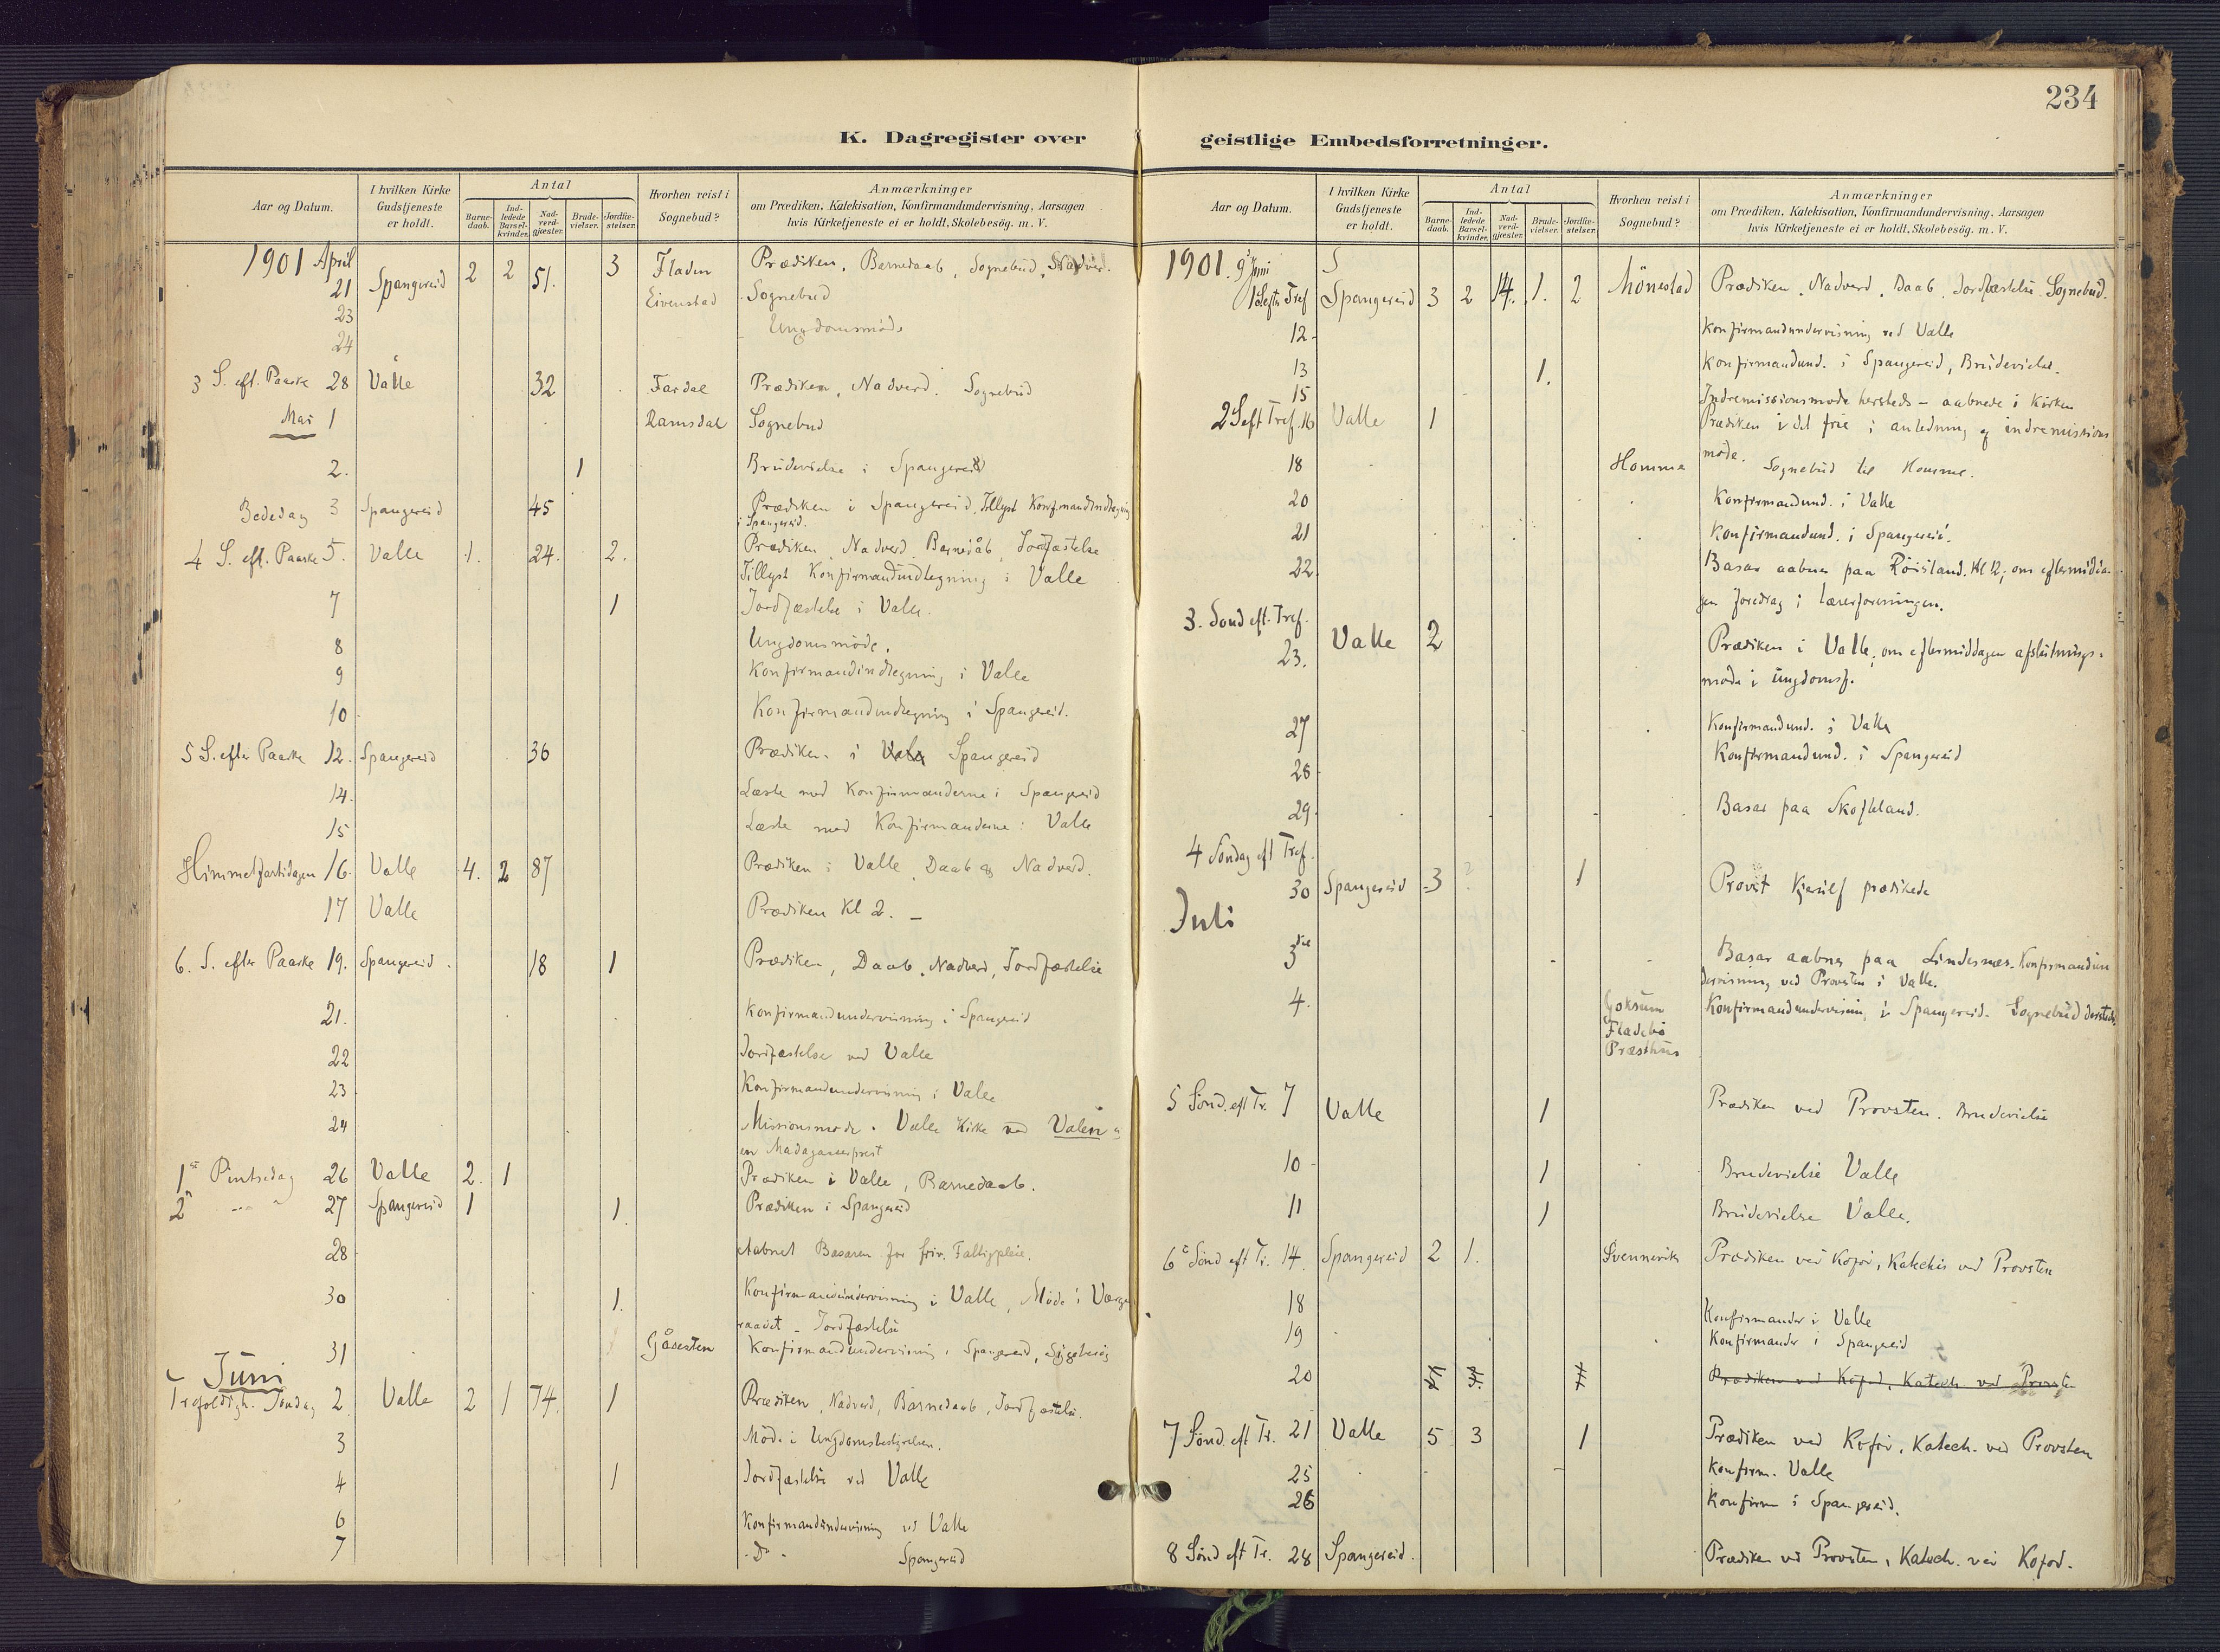 234
K. Dagregister over geistlige Embedsforretninger.
Aar og Datum. I hvilken Kirke Gudstjeneste er holdt. Antal Barne-daab. Ind-ledede Barsel-kvinder. Nad-verd-gjæster. Brude-vielser. Jordfæ-stelser. Hvorhen reist i Sognebud? Anmærkninger om Prædiken, Katekisation, Konfirmandundervisning, Aarsagen hvis Kirketjeneste ei er holdt, Skolebesög. m. V.
1901 April
21 Spangereid 2 2 51. 3 Fladen Prædiken, Barnedaab, Sognebud, Nadver.
23 Eivenstad Sognebud
24 Ungdomsmöde
3 S. eft. Paaske 28 Valle 32 Fardal Prædiken, Nadverd. Sognebud
Mai 1 Ramsdal Sognebud
2. 1 Brudevielse i Spangereid
Bededag 3 Spangereid 45 Prædiken i Spangereid. Tillyst Konfirmandindtegning
i Spangereid.
4 S. eft. Paaske 5. Valle 1. 24. 2. Prædiken, Nadverd, Barnedåb, Jordfæstelse
Tillyst Konfirmandindtegning i Valle
7 1 Jordfæstelse i Valle.
8 Ungdomsmöde.
9 Konfirmandindtegning i Valle
10 Konfirmandindtegning i Spangereid.
5 S. efter Paaske 12. Spangereid 36 Prædiken i Valle Spangereid
14. Læste med Konfirmanderne i Spangereid
15 Læste med Konfirmanderne i Valle
Himmelfartsdagen 16. Valle 4. 2 87 Prædiken i Valle, Daab og Nadverd.
17 Valle Prædiken Kl 2. –
6. S. efter Paaske 19. Spangereid. 18 1 Prædiken, Daab, Nadverd, Jordfæstelse
21. Konfirmandundervisning i Spangereid
22 Jordfæstelse ved Valle
23 Konfirmandundervisning i Valle
24 Missionsmøde i Valle Kirke ved Valen
en Madagascarprest
1ste Pintsedag 26 Valle 2. 1 Prædiken i Valle, Barnedaab.
2 27 Spangereid 1 1. Prædiken i Spangereid
28 Aabnet Basaren for friv. Fattigpleie.
30 1. Konfirmandundervisning i Valle, Møde i Værge
raadet – Jordfæstelse
31 Gåsesten Konfirmandundervisning i Spangereid,
Juni
Trefoldigh. Søndag 2 Valle 2 1 74. 1 Prædiken, Nadverd, Barnedaab, Jordfæstelse.
3 Möde i Ungdomsbestyrelsen.
4 1 Jordfæstelse ved Valle
6 Konfirmandundervisning ved Valle
7 - Do - Spangereid
Aar og Datum. I hvilken Kirke Gudstjeneste er holdt. Antal Barne-daab. Ind-ledede Barsel-kvinder. Nad-verd-gjæster. Brude-vielser. Jordfæ-stelser. Hvorhen reist i Sognebud? Anmærkninger om Prædiken, Katekisation, Konfirmandundervisning, Aarsagen hvis Kirketjeneste ei er holdt, Skolebesög. m. V.
1901. 9 Juni
1 S eftr Tref Spangereid 3 2 14. 1. 2 Mönestad Prædiken, Nadverd, Daab, Jordfæstelse. Sognebud.
12. Konfirmandundervisning ved Valle
13 1. Konfirmandund. i Spangereid, Brudevielse.
15 Indremissionsmøde hersteds – aabnede i Kirken
2 S eft Tref. 16 Valle 1 Prædiken i det frie i anledning af indremissions
møde.
18 Homme Sognebud til Homme.
20 Konfirmandund. i Valle
21 Konfirmandund. i Spangereid.
22 Basar aabnes paa Röisland. Kl 12; om eftermidda-
gen foredrag i lærerforeningen.
3. Sönd eft. Tref.
23. Valle 2 Prædiken i Valle, om eftermiddagen afslutnings-
møde i Ungdomsf.
27 Konfirmandund. i Valle
28 Konfirmandund. i Spangereid
29. Basar paa Skofteland.
4 Søndag eft Tref.
30 Spangereid 3 2 1 Provst prædikede
Juli
3die Basar aabnes paa Lindesnes. Konfirmandun
dervisning ved Provsten i Valle.
4. Goksum Konfirmandundervisning i Spangereid. Sognebud dersteds.
Fladebö
Præsthus
5 Sönd. eft Tr. 7 Valle 1 Prædiken ved Provsten. Brudevielse
10 1 Brudevielse Valle
11 1 Brudevielse Valle.
6 Sönd eft Tr. 14. Spangereid 2 1. Svennevik Prædiken ved Kofod, Katekis ved Provsten
18 Konfirmander i Valle
19 Konfirmander i Spangereid
20 Prædiken ved Kofod, Katech ved Provsten
7 Sönd. eft Tr. 21 Valle 5 3 1 Prædiken ved Kofod, Katech. ved Provsten
25 Konfirm. Valle
26 Konfirm i Spangereid.
8 Sönd eft Tr. 28 Spangereid. Prædiken ved Provsten, Katech. ved Kofod.